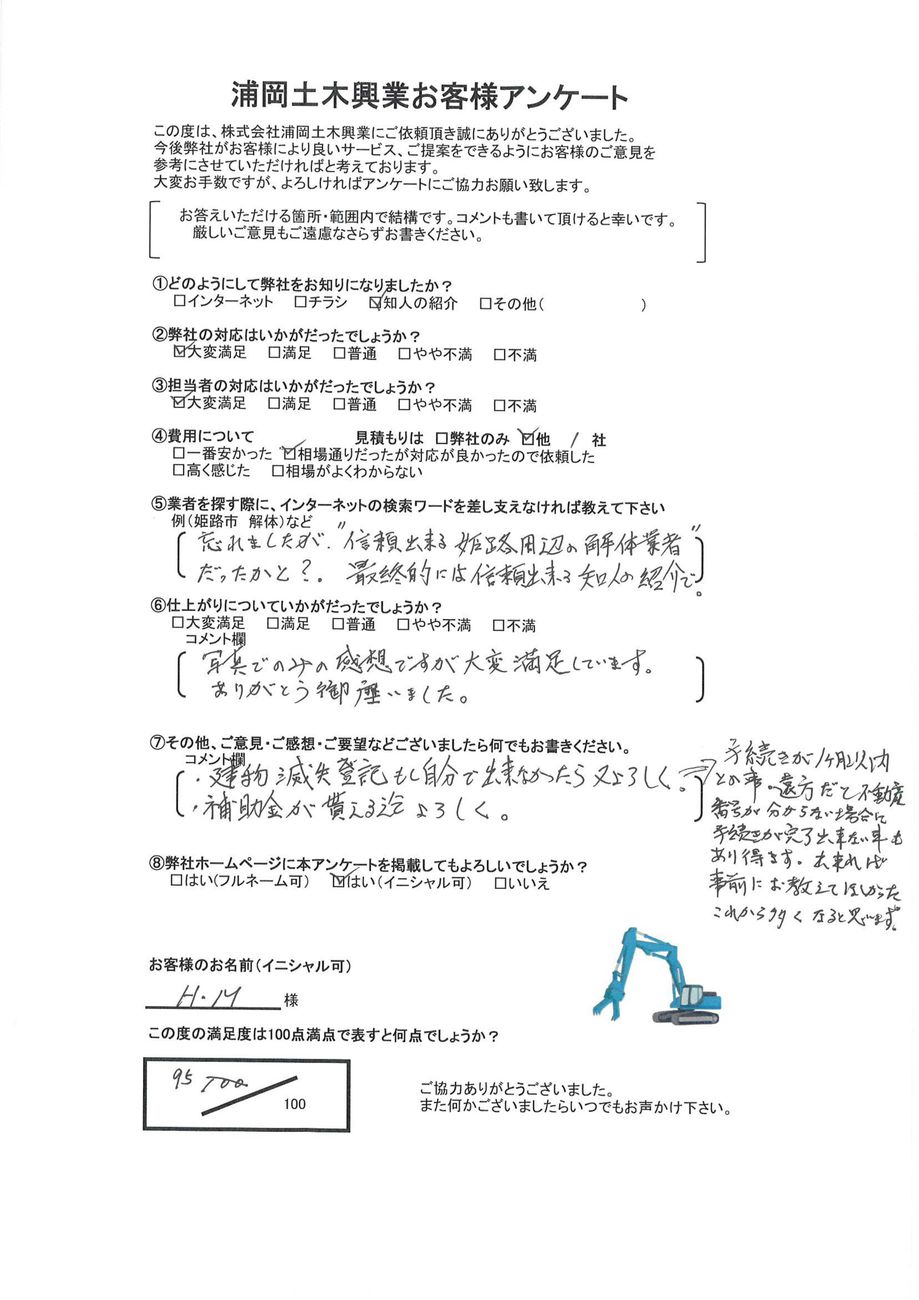 浦岡土木興業お客様アンケート
この度は、株式会社浦岡土木興業にご依頼頂き誠にありがとうございました。
今後弊社がお客様により良いサービス、ご提案をできるようにお客様のご意見を
参考にさせていただければと考えております。
大変お手数ですが、よろしければアンケートにご協力お願い致します。
お答えいただける箇所・範囲内で結構です。コメントも書いて頂けると幸いです。
厳しいご意見もご遠慮なさらずお書きください。
①どのようにして弊社をお知りになりましたか？
□インターネット □チラシ ☑知人の紹介 □その他( )
②弊社の対応はいかがだったでしょうか？
☑大変満足 □満足 □普通 □やや不満 □不満
③担当者の対応はいかがだったでしょうか？
☑大変満足 □満足 □普通 □やや不満 □不満
④費用について 見積もりは □弊社のみ ☑他 1 社
□一番安かった ☑相場通りだったが対応が良かったので依頼した
□高く感じた □相場がよくわからない
⑤業者を探す際に、インターネットの検索ワードを差し支えなければ教えて下さい
例(姫路市 解体)など
忘れましたが、"信頼出来る姫路周辺の解体業者"
だったかと？。最終的には信頼出来る知人の紹介で。
⑥仕上がりについていかがだったでしょうか？
□大変満足 □満足 □普通 □やや不満 □不満
コメント欄
写真でのみの感想ですが大変満足しています。
ありがとう御座いました。
⑦その他、ご意見・ご感想・ご要望などございましたら何でもお書きください。
コメント欄
・建物滅失登記もし自分で出来なかったら又よろしく。
・補助金が貰える迄よろしく。
手続きが1ヶ月以内
との事。遠方だと不動産
番号が分からない場合に
手続きが完了出来ない事も
あり得ます。出来れば
事前にお教えてほしかった
これから多くなると思います。
⑧弊社ホームページに本アンケートを掲載してもよろしいでしょうか？
□はい(フルネーム可) ☑はい(イニシャル可) □いいえ
お客様のお名前(イニシャル可)
H.M 様
この度の満足度は100点満点で表すと何点でしょうか？
95 100
100
ご協力ありがとうございました。
また何かございましたらいつでもお声かけ下さい。